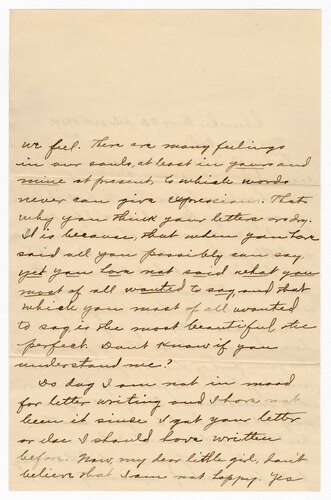 we feel. There are many feelings
in our souls, at least in yours and
mine at present, to which words
never can give expression. Thats
why you think your letters or dry.
It is because, that when you have
said all you possibly can say,
yet you have not said what you
most of all wanted to say, and that
which you most of all wanted
to say, is the most beautiful, the
perfect. Dont know if you
understand me?
To day I am not in mood
for letter writing and I have not
been it since I got your letter
or else I should have written
before. Now, my dear little girl, don't
believe that I am not happy. Yes